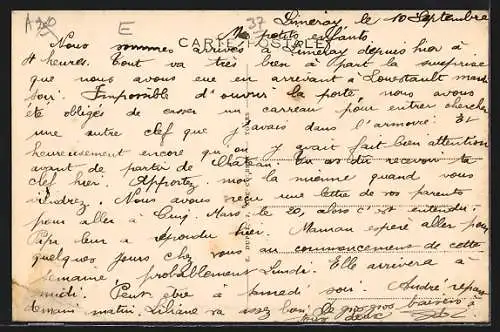 A 200 E 37
Limeray, le 10 Septembre
Mes petits enfants
CARTE POSTALE
Nous sommes arrivés à Limeray depuis hier à
4 heures. Tout va très bien à part la surprise
que nous avons eue en arrivant à mardi
soir. Impossible d'ouvrir la porte nous avons
été obligés de casser un carreau pour entrer chercher
une autre clef que j'avais dans l'armoire. Et
heureusement encore qu'on y avait fait bien attention
avant de partir de Château. On as dû recevoir ta
clef hier. Apportez moi la mienne quand vous
viendrez. Nous avons reçu une lettre de vos parents
pour aller à Cinq. Mars le 20, alors c'est entendu
Papi leur a répondu hier. Maman espère aller passer
quelques jours chez vous au commencement de cette
semaine, probablement Lundi. Elle arrivera à
midi. Peut être à samedi soir. André repart
demain matin. Liliane va assez bien. De gros gros baisers à
tous deux